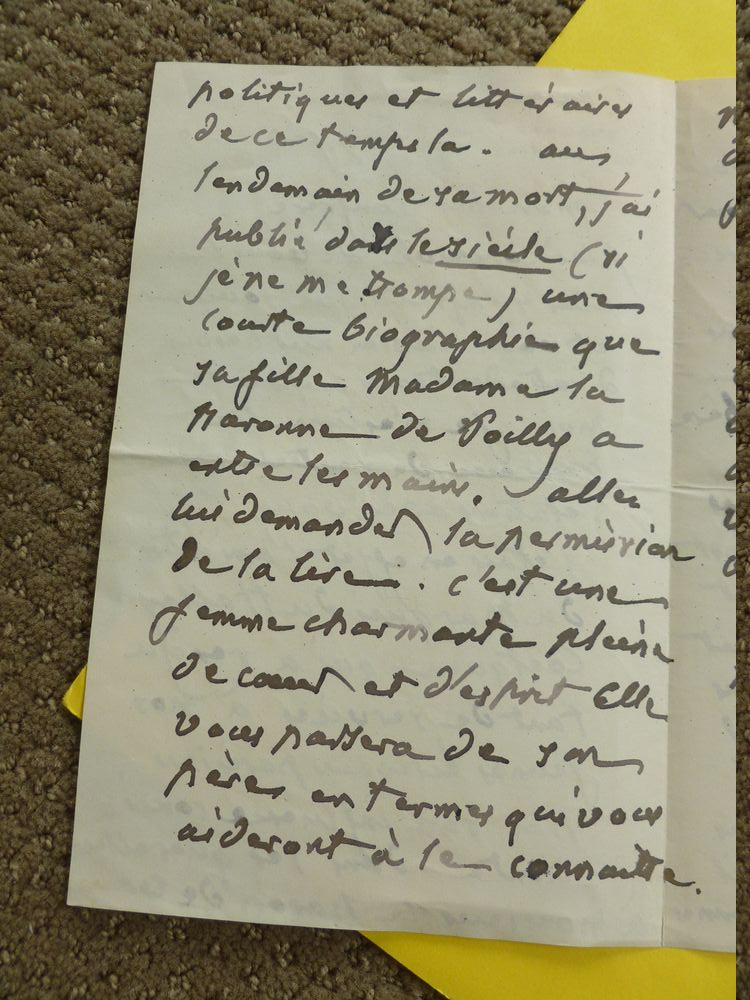 politiques et littéraires
de ce temps la. au
lendemain de sa mort, j'ai
publié dans le siècle (si
je ne me trompe) une
courte biographie que
sa fille Madame la
Baronne de Poilly a
entre les mains. allez
lui demander la permission
de la lire. c'est une
femme charmante pleine
de coeur et d'esprit Elle
vous parlera de son
père en termes qui vous
aideront à le connaitre.